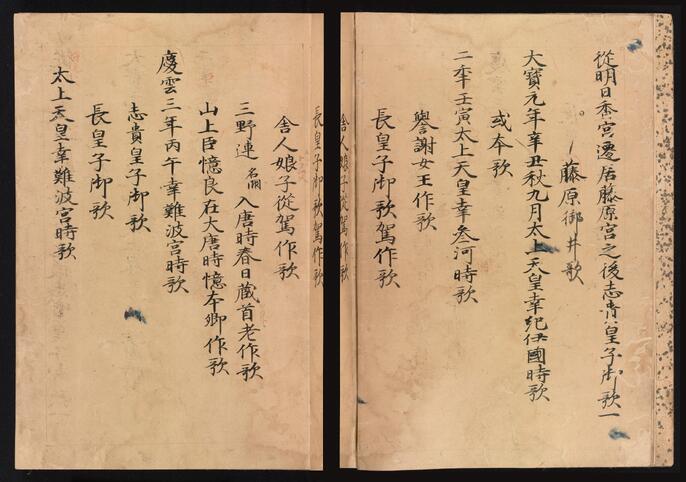 從明日香宮遷居藤原宮之後志貴皇子御歌一
藤原御井歌
大寶元年辛丑秋九月太上天皇幸紀伊國時歌
或本歌
二年壬寅太上天皇幸叁河時歌
譽謝女王作歌
長皇子御歌駕作歌
舎人娘子從駕作歌
長皇子御歌駕作歌
舎人娘子從駕作歌
三野連 名闕 入唐時春日蔵首老作歌
山上臣憶良在大唐時憶本郷作歌
慶雲三年丙午幸難波宮時歌
志貴皇子御歌
長皇子御歌
太上天皇幸難波宮時歌